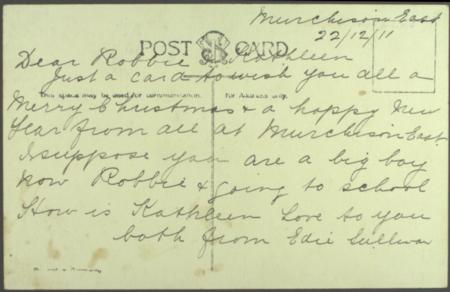 Murchison East
22/12/11
POST CARD
Dear Robbie & Kathleen
Just a card to wish you all a
This space may be used for communication.
For Address only.
Merry Christmas & a happy New
Year from all at Murchison East.
I suppose you are a big boy
now Robbie & going to school
How is Kathleen Love to you
both from Edie Sullivan